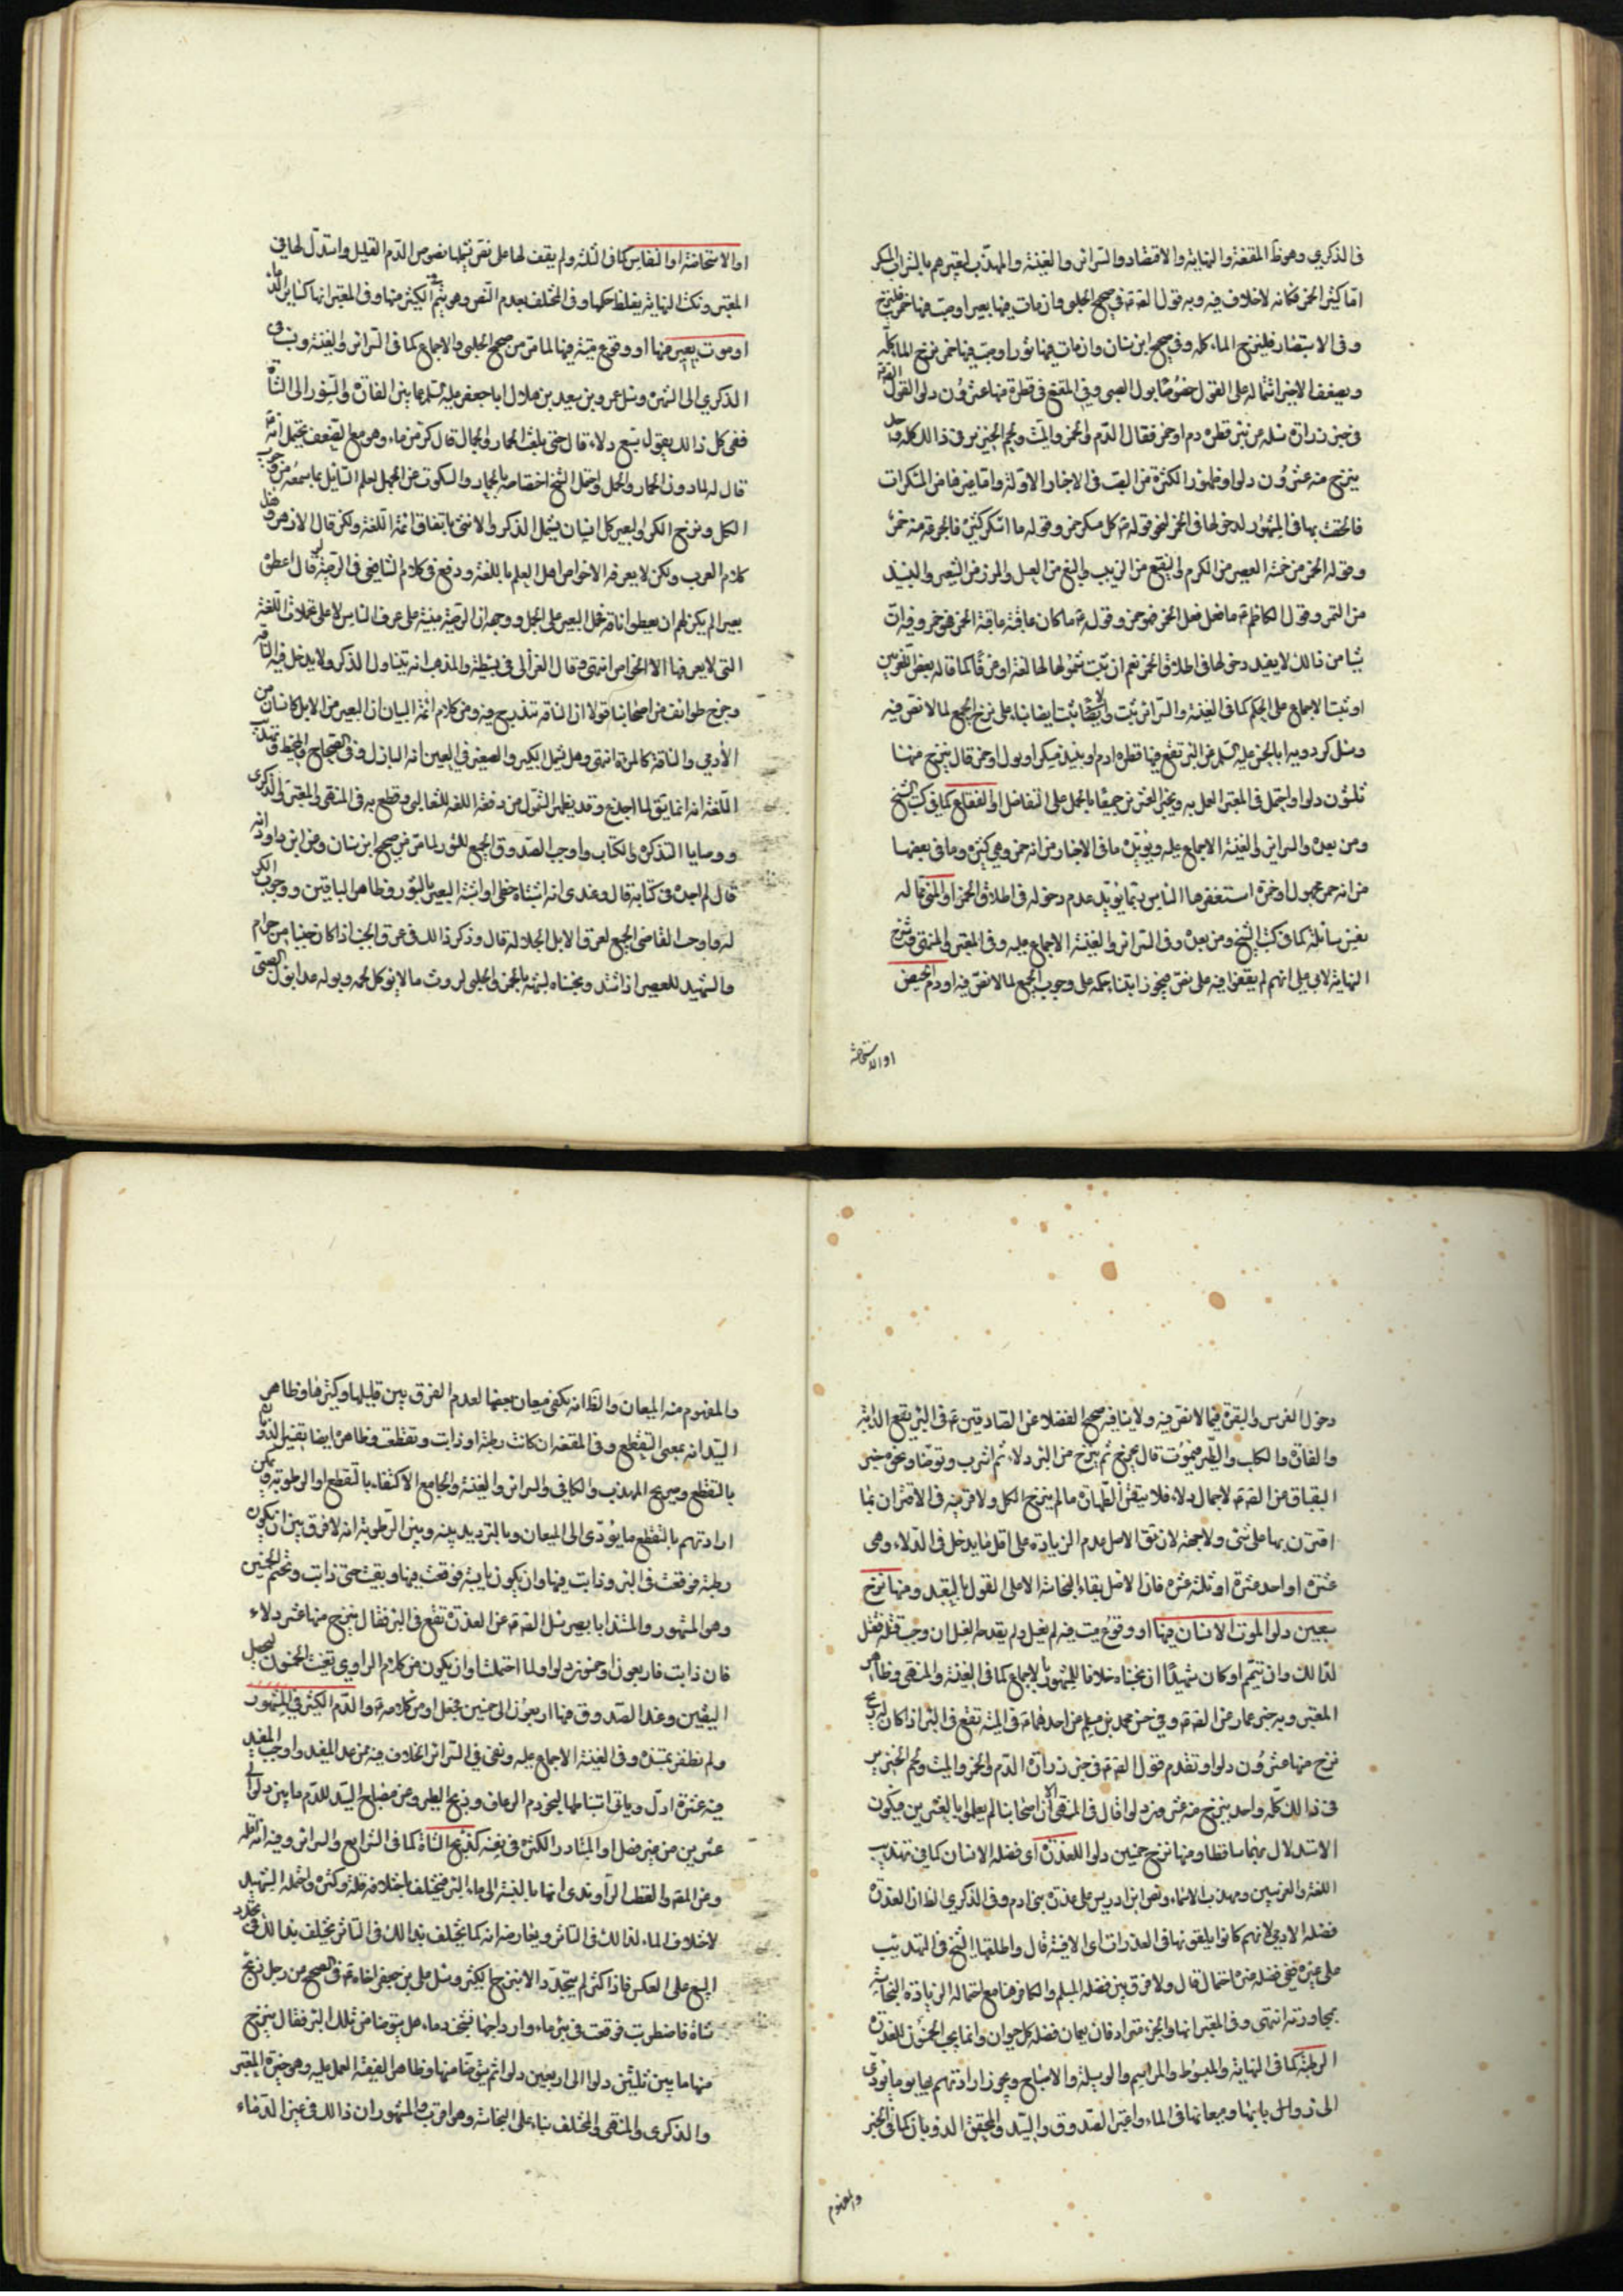 في الذكرى وهو ظ المقنعة والنهاية والاقتصاد والسرائر والغنية والمهذب لتعبيرهم بالشراب المسكر
اما كثير الخمر فكانه لا خلاف فيه وبه قول الصادق ع في صحيح الحلبي وان مات فيها بعير او صب فيها خمر فلينزح
وفي الاستبصار فلينزح الماء كله وفي صحيح ابن سنان وان مات فيها ثور او صب فيها خمر نزح الماء كله
ويضعف الاخير اشتماله على القول خصوصا ببول الصبي وفي المقنع في قطرة منها عشرون دلوا لقول الصادق ع
في خبر زرارة سئله عن بئر قطر فيها قطرة دم او خمر فقال الدم والخمر والميت ولحم الخنزير في ذلك كله واحد
ينزح منه عشرون دلوا وظهور الكثرة من الصب في الاخبار الاولة واما غيرها من المسكرات
فالحقت بها في المشهور لدخولها في الخمر لنحو قوله ع كل مسكر خمر وقوله ما اسكر كثيره فالجرعة منه خمر
وقوله الخمر من خمسة العصير من الكرم والنقيع من الزبيب والبتع من العسل والمزر من الشعير والنبيذ
من التمر وقول الكاظم ع ما فعل فعل الخمر فهو خمر وقوله ع ما كان عاقبته عاقبة الخمر فهو خمر وفيه ان
شيئا من ذلك لا يفيد دخولها في اطلاق الخمر نعم ان ثبت شمولها لها لغة او عرفا كما قاله بعض اللغويين
او ثبت الاجماع على الحكم كما في الغنية والسرائر ثبت والا ثبت ايضا بناء على نزح الجميع لما لا نص فيه
وسئل كردويه ابا الحسن عليه السلام عن البئر تقع فيها قطرة دم او نبيذ مسكر او بول او خمر قال ينزح منها
ثلثون دلوا واحتمل في المعتبر العمل به وبخبر العشرين جميعا بالحمل على التفاضل او الفقاع كما في كتب الشيخ
ومن بعده والسرائر والغنية الاجماع عليه ويؤيده ما في الاخبار من انه خمر وهي كثيرة وما في بعضها
من انه خمر مجهول او خمرة استصغرها الناس ربما يؤيد عدم دخوله في اطلاق الخمر او المني مما له
نفس سائلة كما في كتب الشيخ ومن بعده وفي السرائر والغنية الاجماع عليه وفي المعتبر والمنتهى وشرح
النهاية لابي علي انهم لم يقفوا فيه على نص فيجوز ابتناء حكمه على وجوب الجميع لما لا نص فيه او دم الحيض
او الاستحاضة
او الاستحاضة او النفاس كما في الثلثة ولم يقف لها على نص نعم شملها نصوص الدم القليل واستدل لها في
المعتبر ونكت النهاية بغلظ حكمها وفي المختلف بعدم النص وهو يتم في الكثير منها وفي المعتبر انها كسائر الدماء
او موت بعير فيها او وقوع ميتة فيها لما مر من صحيح الحلبي والاجماع كما في السرائر والغنية ونسب في
الذكرى الى الشهرة وسئل عمرو بن سعيد بن هلال ابا جعفر عليه السلام عما بين الفارة والسنور الى الشاة
ففي كل ذلك يقول سبع دلاء قال حتى بلغت الحمار والجمال قال كر من ماء وهو مع الضعف يحتمل انه ع
قال له لما دون الحمار والجمل واحتمل الشيخ اختصاصه بالحمار والسكوت عن الجمل لعلم السايل بما سمعه من وجوب
الكل ونزح الكر والبعير كل انسان يشمل الذكر والانثى باتفاق ائمة اللغة ولكن قال الازهري هذا
كلام العرب ولكن لا يعرفه الا خواص اهل العلم باللغة ووقع في كلام الشافعي في الوصية لو قال اعطوه
بعيرا لم يكن لهم ان يعطوا ناقة فحمل البعير على الجمل ووجهه ان الوصية مبنية على عرف الناس لا على محتملات اللغة
التي لا يعرفها الا الخواص انتهى وقال الغزالي في بسيطه والمذهب انه يتناول الذكر ولا يدخل فيه الناقة
وخرج طوائف من اصحابنا قولا ان الناقة تندرج فيه ومن كلام ائمة البيان ان البعير من الابل كالانسان من
الآدمي والناقة كالمرأة انتهى وهل يشمل الكبير والصغير في العين انه البازل وفي الصحاح والمحيط وتهذيب
اللغة انه انما يقال لما اجذع وقد يظهر الشمول من فقه اللغة للثعالبي وقطع به في المنتهى والمعتبر والذكرى
ووصايا التذكرة والكتاب واوجب الصدوق الجميع للثور لما مر من صحيح ابن سنان وعن ابن داود انه
قال لم اجده في كتابه قال وعندي انه اشتباه خطي او اشتبه البعير بالثور وظاهر الباقين ووجوب الكر
له واوجب القاضي الجميع لعرق الابل الجلالة قال وذكر ذلك في عرق الجنب اذا كان جنبا من حرام
والشهيد للعصير اذا اشتد ونجسناه لشبهه بالخمر والحلبي لروث ما لا يؤكل لحمه وبوله عدا بول الصبي
دخول الفرس والبقرة فيما لا نص فيه ولا ينافيه صحيح الفضلاء عن الصادقين ع في البئر تقع الدابة
والفارة والكلب والطير فيموت قال يخرج ثم ينزح من البئر دلاء ثم اشرب وتوضأ ونحوه خبر
البقباق عن الصادق ع لاجمال دلاء فلا يتعين الطهارة ما لم ينزح الكل ولا قرينة في الاقتران بما
اقترن بها على شيء ولا جهة لان يق الاصل عدم الزيادة على اقل ما يدخل في الدلاء وهي
عشرة او احد عشرة او ثلثة عشرة فان الاصل بقاء النجاسة الا على القول بالتعبد ومنها نزح
سبعين دلوا لموت الانسان فيها او وقوع ميت فيه لم يغسل ولم يقدم الغسل ان وجب قتله فقتل
لذلك وان تيمم او كان شهيدا ان نجسناه خلافا للمشهور بالاجماع كما في الغنية والمنتهى وظاهر
المعتبر وبه خبر عمار عن الصادق ع وفي حسن محمد بن مسلم عن احدهما ع في الميتة تقع في البئر اذا كان له ريح
نزح منها عشرون دلوا وتقدم قول الصادق ع في خبر زرارة الدم والخمر والميت ولحم الخنزير
في ذلك كله واحد ينزح منه عشرون دلوا قال في المنتهى الا ان اصحابنا لم يعملوا بالعشرين فيكون
الاستدلال بهما ساقطا ومنها نزح خمسين دلوا للعذرة اي فضلة الانسان كما في تهذيب
اللغة والغريبين ومهذب الاسماء ونص ابن ادريس على عذرة بني ادم وفي الذكرى الظ ان العذرة
فضلة الادمي لانهم كانوا يلقونها في العذرات اي الافنية قال واطلقها الشيخ في التهذيب
على غيره ففي فضلة غيره احتمال قال ولا فرق بين فضلة المسلم والكافر هنا مع احتماله لزيادة النجاسة
بمجاورته انتهى وفي المعتبر انها والخرء مترادفان يعمان فضلة كل حيوان وانما يجب الخمسون للعذرة
الرطبة كما في النهاية والمبسوط والمراسم والوسيلة والاصباح ويجوز ارادتهم بها يوما يؤدي
الى زوال يابسها وميعانها في الماء واعتبر الصدوق والسيد والمحقق الذوبان كما في الخبر
والمفهوم
والمفهوم منه الميعان والظ انه يكفي ميعان بعضها لعدم الفرق بين قليلها وكثيرها وظاهر
السيد انه بمعنى التقطع وفي المقنعة ان كانت رطبة او ذابت وتقطعت وظاهره ايضا تفسير الذوبان
بالتقطع وصريح المهذب والكافي والسرائر والغنية والجامع الاكتفاء بالتقطع او الرطوبة ويمكن
ارادتهم بالتقطع ما يؤدي الى الميعان وبالترديد بينه وبين الرطوبة انه لا فرق بين ان تكون
رطبة فوقعت في البئر وذابت فيها وان يكون يابسة فوقعت فيها وبقيت حتى ذابت وتحتم الخمسين
وهو المشهور والمستند ابا بصير سئل الصادق ع عن العذرة تقع في البئر فقال ينزح منها عشر دلاء
فان ذابت فاربعون او خمسون دلوا ولما احتملت او ان يكون من كلام الراوي تعينت الخمسون لتحصيل
اليقين وعند الصدوق فيها اربعون الى خمسين فيجعل او من كلامه ع والدم الكثير في المشهور
ولم نظفر بمستنده وفي الغنية الاجماع عليه ونفى في السرائر الخلاف فيه ممن عدا المفيد واوجب المفيد
فيه عشرة ادل وياتي انتسابها لنحو دم الرعاف وذبح الطير وعن مصباح السيد للدم ما بين دلو الى
عشرين من غير فصل او المتبادر الكثرة في نفسه كذبح الشاة كما في الشرايع والسرائر وفيه انه اقله
وعن المصنف والقطب الراوندي انها بالنسبة الى ماء البئر فيختلف باختلافه قلة وكثرة واحتمله الشهيد
لاختلاف الماء لذلك في التاثر ويعارضه انه كما يختلف بذلك في التاثر يختلف بذلك في
النبع على العكس فاذا كثر لم يتجدد الا بنزح الكثير وسئل علي بن جعفر اخاه ع في الصحيح عن رجل ذبح
شاة فاضطربت فوقعت في بئر ماء واوداجها تشخب دما هل يتوضأ من تلك البئر فقال ينزح
منها ما بين ثلثين دلوا الى اربعين دلوا ثم يتوضأ منها وظاهر الفقيه العمل عليه وهو خيرة المعتبر
والذكرى والمنتهى والمختلف بناء على النجاسة وهو اقرب والمشهور ان ذلك في غير الدماء